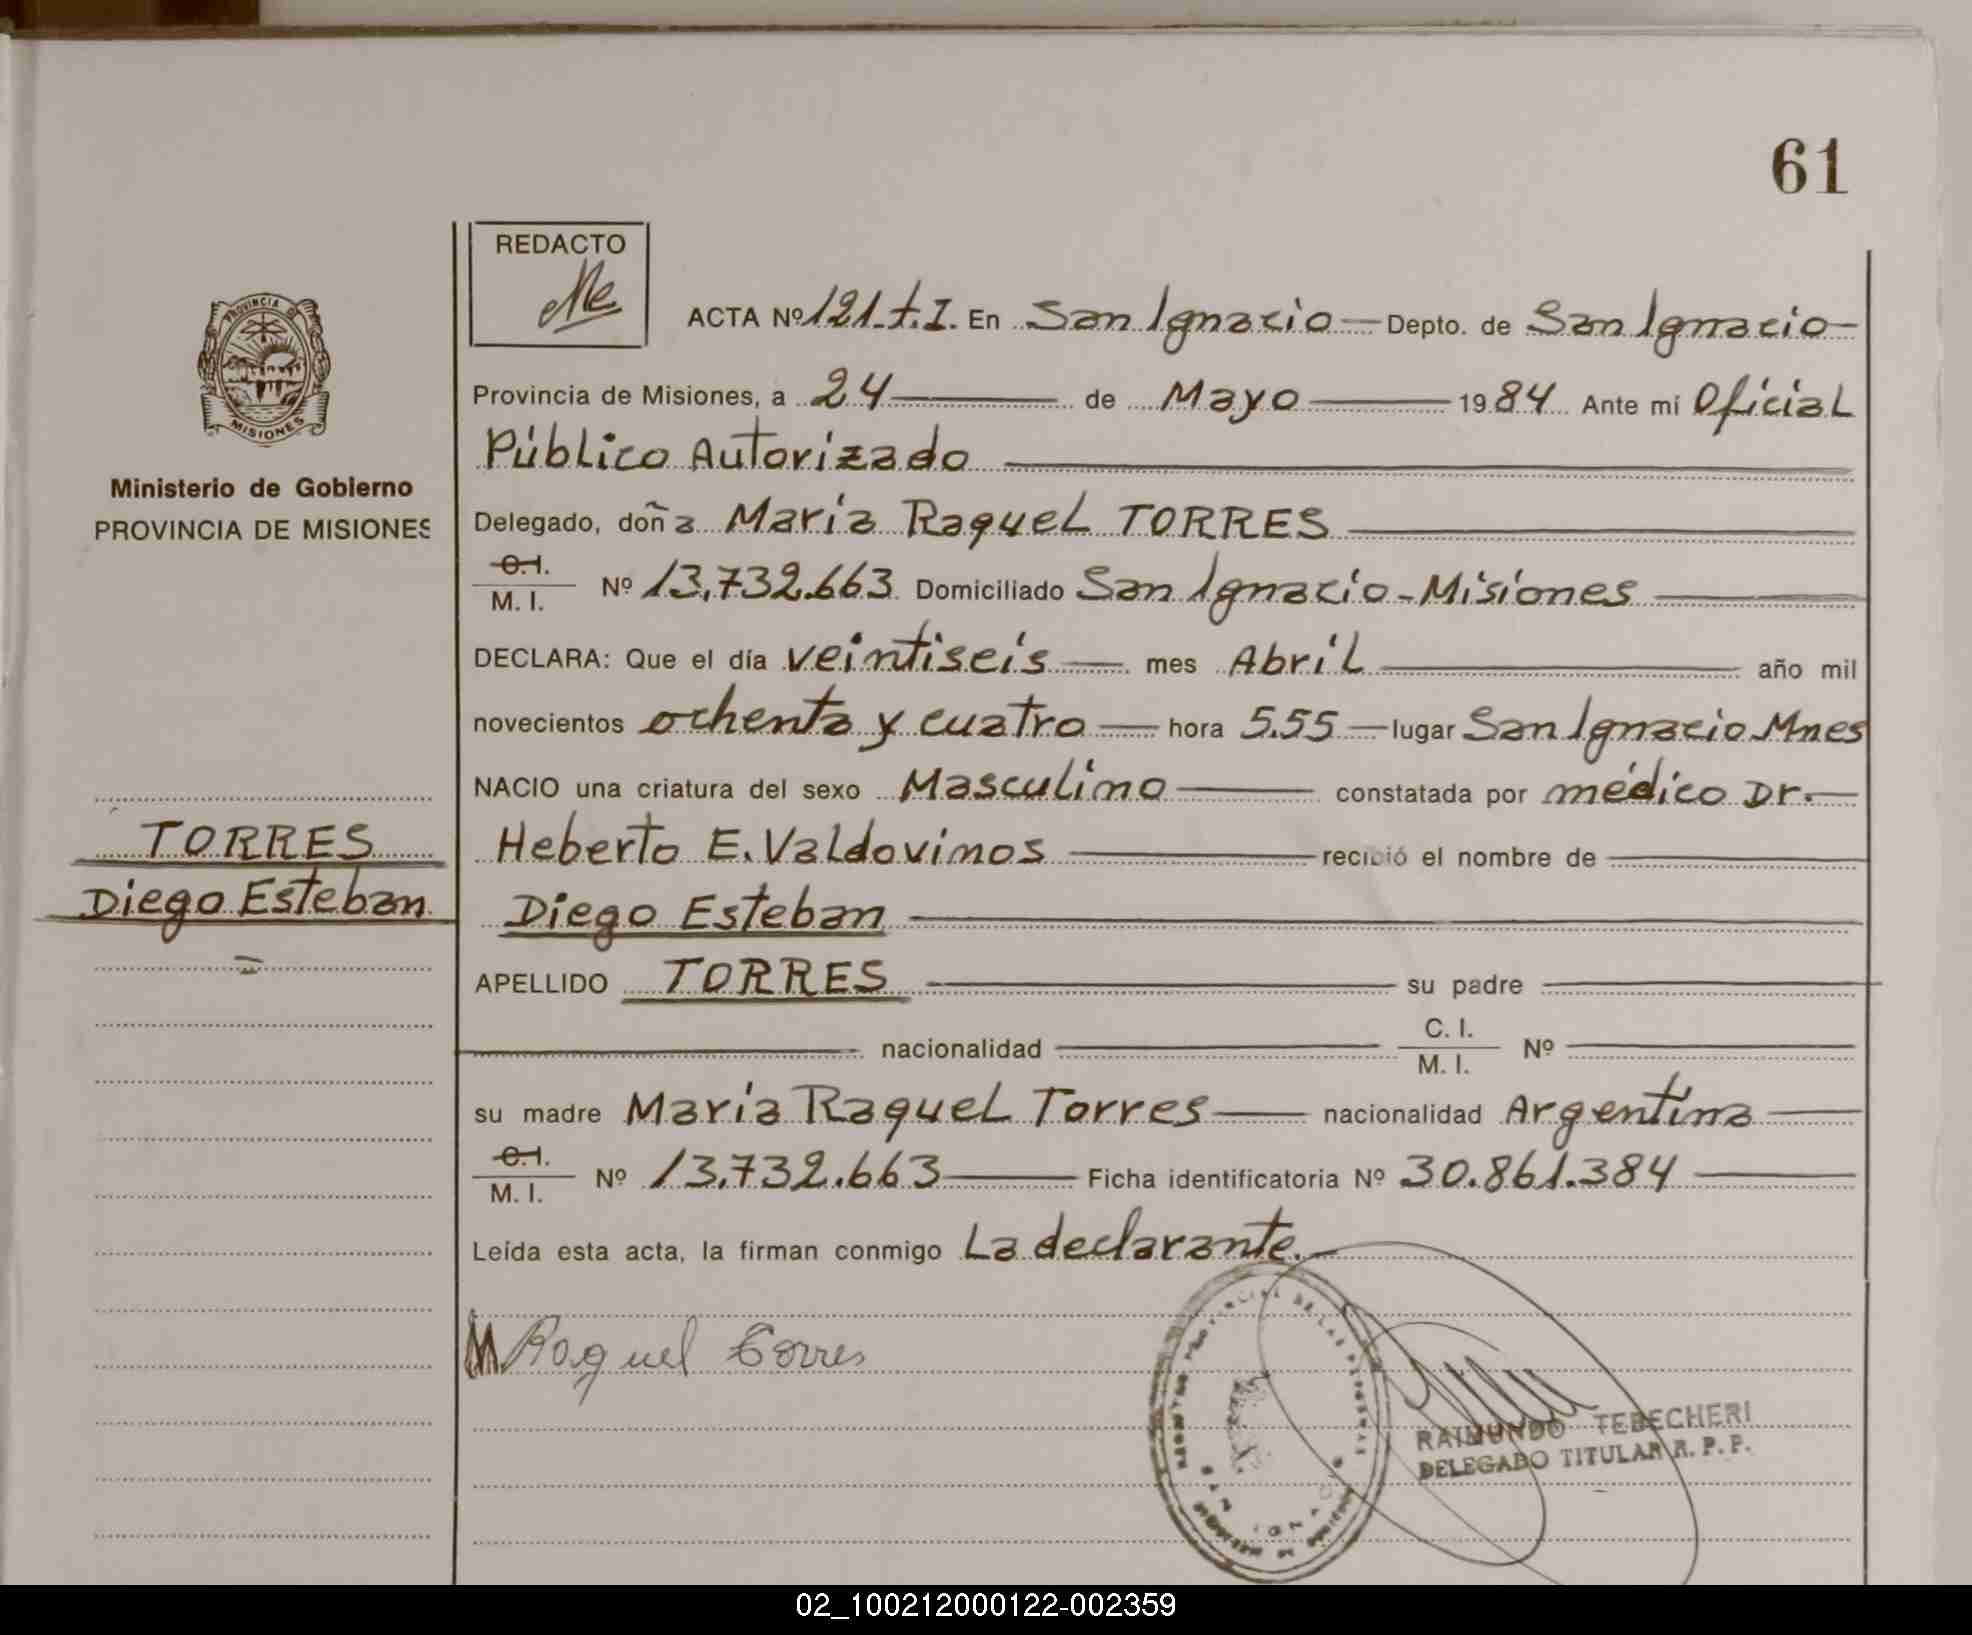 61
REDACTO
PROVINCIA
MISIONES
Ministerio de Gobierno
PROVINCIA DE MISIONES
TORRES
Diego Esteban
ACTA Nº 121.t.I. En San Ignacio Depto. de San Ignacio
Provincia de Misiones, a 24 de Mayo 1984 Ante mi Oficial
Público Autorizado
Delegado, doña Maria Raquel TORRES
C.I.
M. I. Nº 13.732.663 Domiciliado San Ignacio - Misiones
DECLARA: Que el día veintiseis mes Abril año mil
novecientos ochenta y cuatro hora 5.55 lugar San Ignacio Mnes
NACIO una criatura del sexo Masculino constatada por médico Dr.
Heberto E. Valdovinos recibió el nombre de
Diego Esteban
APELLIDO TORRES su padre
nacionalidad C. I. Nº
M. I.
su madre María Raquel Torres nacionalidad Argentina
C.I.
M. I. Nº 13.732.663 Ficha identificatoria Nº 30.861.384
Leída esta acta, la firman conmigo La declarante.
M Raquel Torres
RAIMUNDO TEBECHERI
DELEGADO TITULAR R. P. P.
02_100212000122-002359